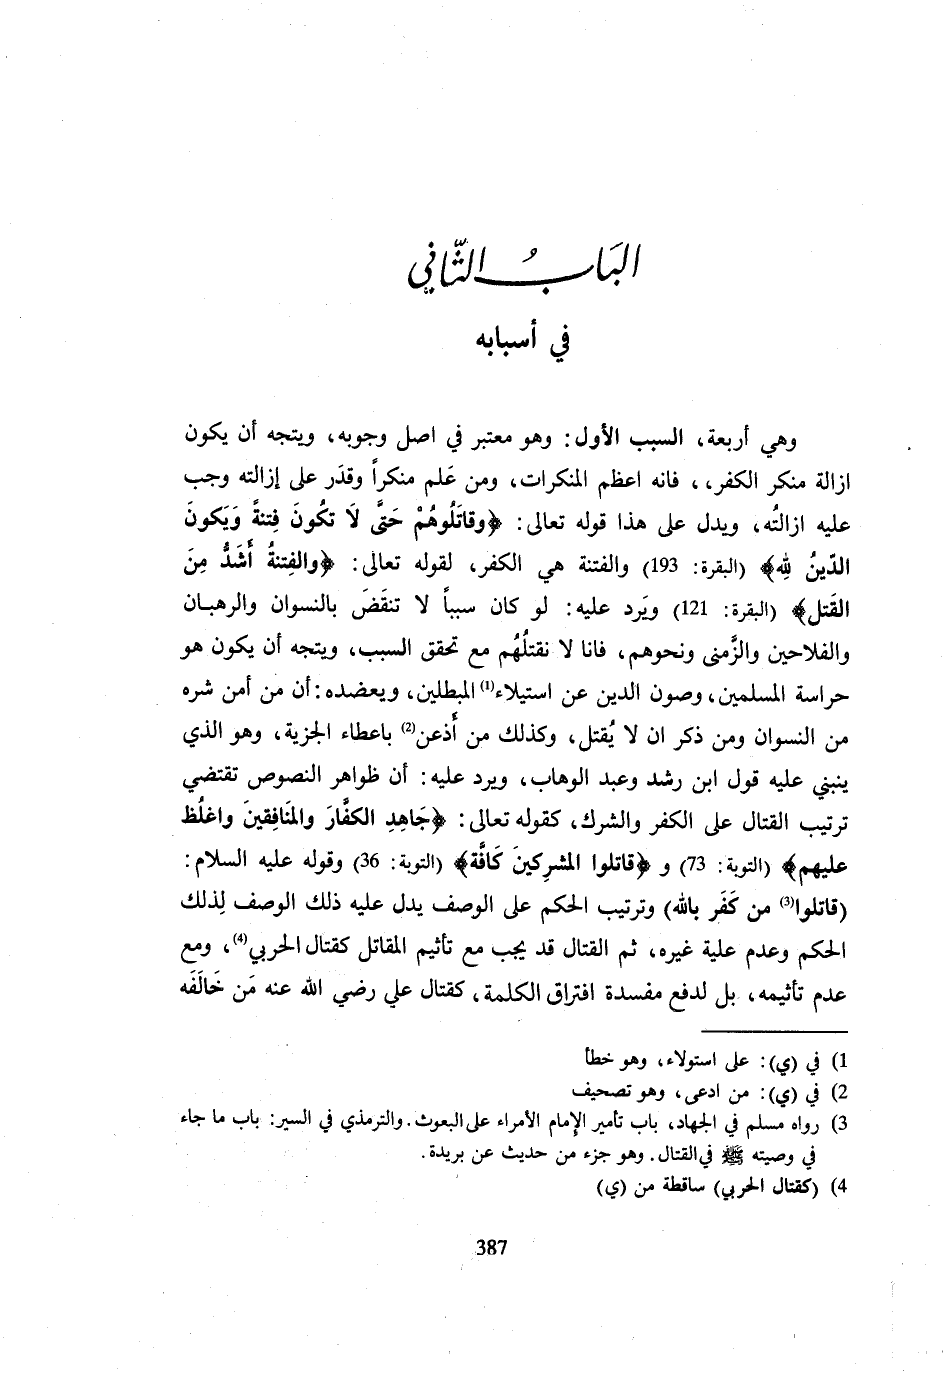 البَابُ الثَّاني
في أسبابه
وهي أربعة، السبب الأول: وهو معتبر في اصل وجوبه، ويتجه أن يكون
ازالة منكر الكفر،، فانه اعظم المنكرات، ومن عَلم منكراً وقدَر على إزالته وجب
عليه ازالتُه، ويدل على هذا قوله تعالى: ﴿وقاتَلُوهُمْ حَتَّى لَا تكُونَ فِتنةً وَيَكونَ
الدّينُ لِله﴾ (البقرة: 193) والفتنة هي الكفر، لقوله تعالى: ﴿والفِتنةُ أَشَدُّ مِنَ
القَتل﴾ (البقرة: 121) ويَرد عليه: لو كان سبباً لا تنقَضَ بالنسوان والرهبان
والفلاحين والزَّمنى ونحوهم، فانا لا نقتلُهُم مع تحقق السبب، ويتجه أن يكون هو
حراسة المسلمين، وصون الدين عن استيلاء(1) المبطلين، ويعضده: أن من أمن شره
من النسوان ومن ذكر ان لا يُقتل، وكذلك من أَذعن(2) باعطاء الجزية، وهو الذي
ينبني عليه قول ابن رشد وعبد الوهاب، ويرد عليه: أن ظواهر النصوص تقتضي
ترتيب القتال على الكفر والشرك، كقوله تعالى: ﴿جَاهِدِ الكفَّارَ والمنَافِقينَ واغلُظ
عليهم﴾ (التوبة: 73) و ﴿قاتلوا المشرِكينَ كَافَّة﴾ (التوبة: 36) وقوله عليه السلام:
(قاتلوا(3) من كَفَر بالله) وترتيب الحكم على الوصف يدل عليه ذلك الوصف لِذلك
الحكم وعدم علية غيره، ثم القتال قد يجب مع تأثيم المقاتل كقتال الحربي(4)، ومع
عدم تأثيمه، بل لدفع مفسدة افتراق الكلمة، كقتال علي رضي الله عنه مَن خَالَفَه
1) في (ي): على استولاء، وهو خطأ
2) في (ي): من ادعى، وهو تصحيف
3) رواه مسلم في الجهاد، باب تأمير الإمام الأمراء على البعوث. والترمذي في السير: باب ما جاء
في وصيته ﷺ في القتال. وهو جزء من حديث عن بريدة.
4) (كقتال الحربي) ساقطة من (ي)
387